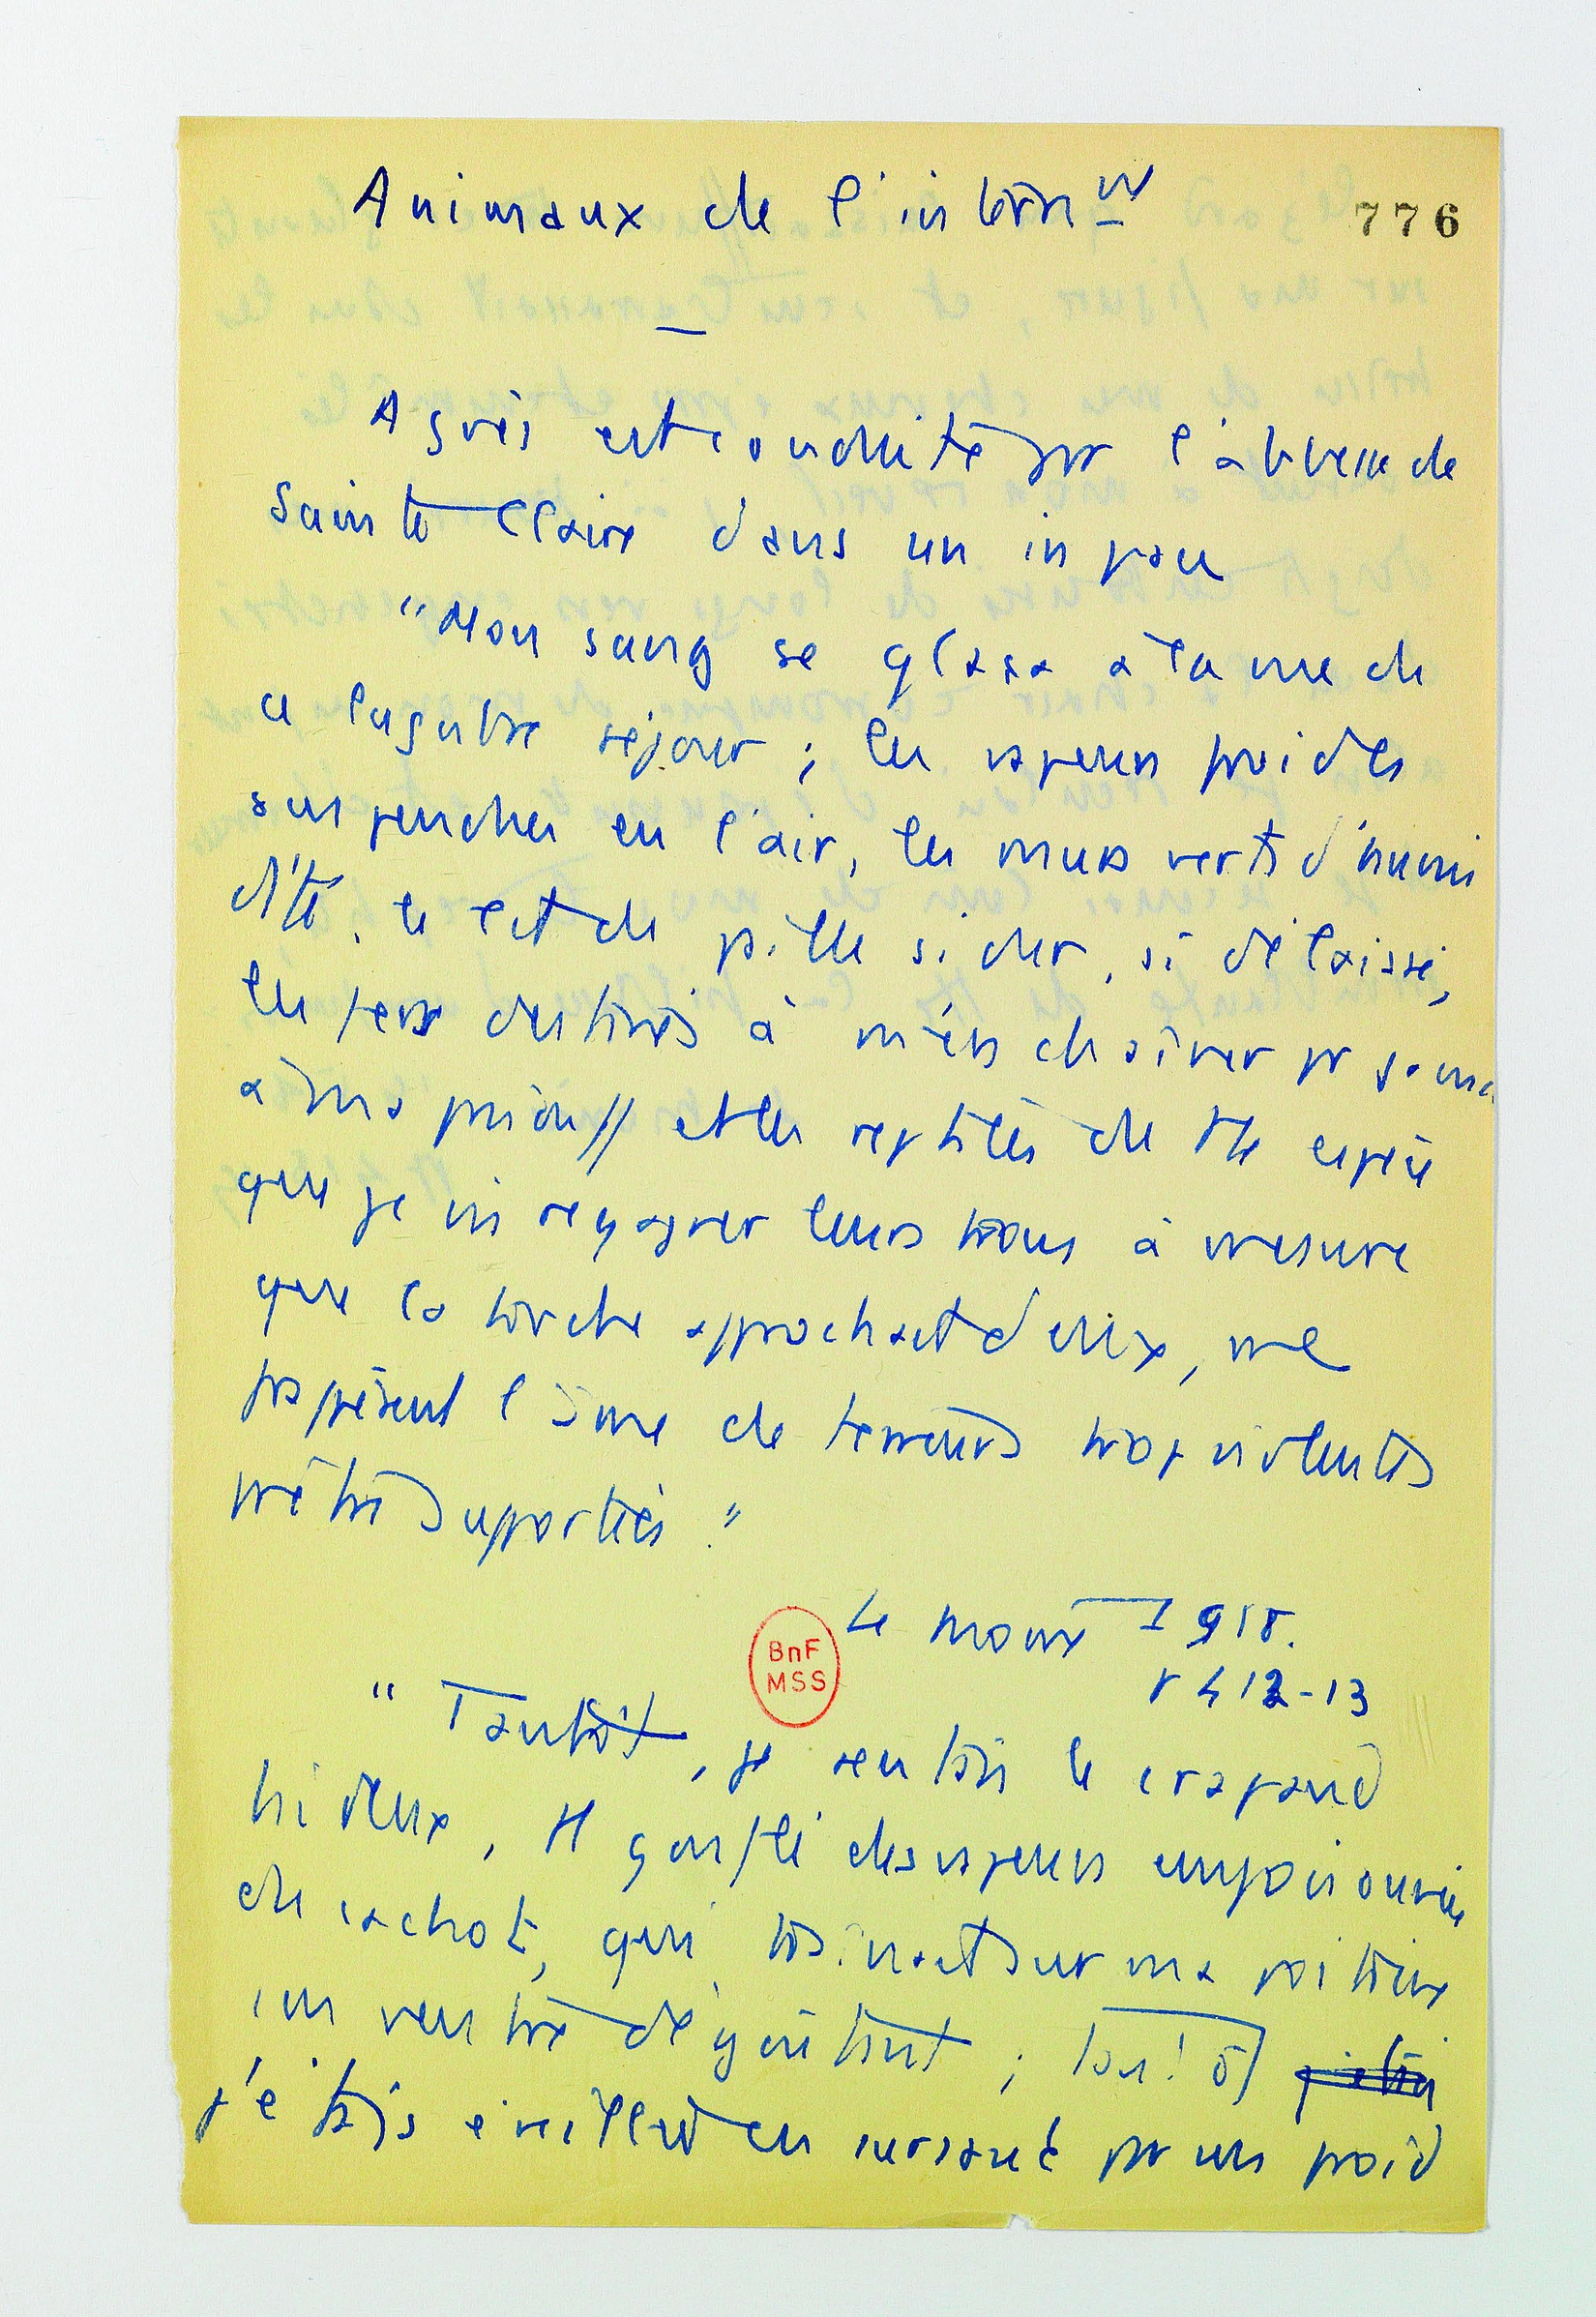 Animaux de l'intérnr
776
—
Agnès est conduite par l'abbesse de
Sainte Claire dans un in pace
"Mon sang se glaça à la vue de
ce lugubre séjour ; les vapeurs froides
suspendues en l'air, les murs verts d'humi
dité, le lit de paille si dur, si délaissé,
les fers destinés à m'enchaîner pr
à ma prison // et les reptiles de tte espèce
que je vis regagner leurs trous à mesure
que la torche approchait d'eux, me
frappèrent l'âme de terreurs trop violentes
pr être supportées."
Le moine I 918.
BnF
MSS
p 412-13
"Tantôt, je sentais le crapaud
hideux, et gonflé des vapeurs empoisonnées
du cachot, qui traînait sur ma poitrine
son ventre dégoûtant ; tantôt
j'étais éveillée en sursaut par un froid